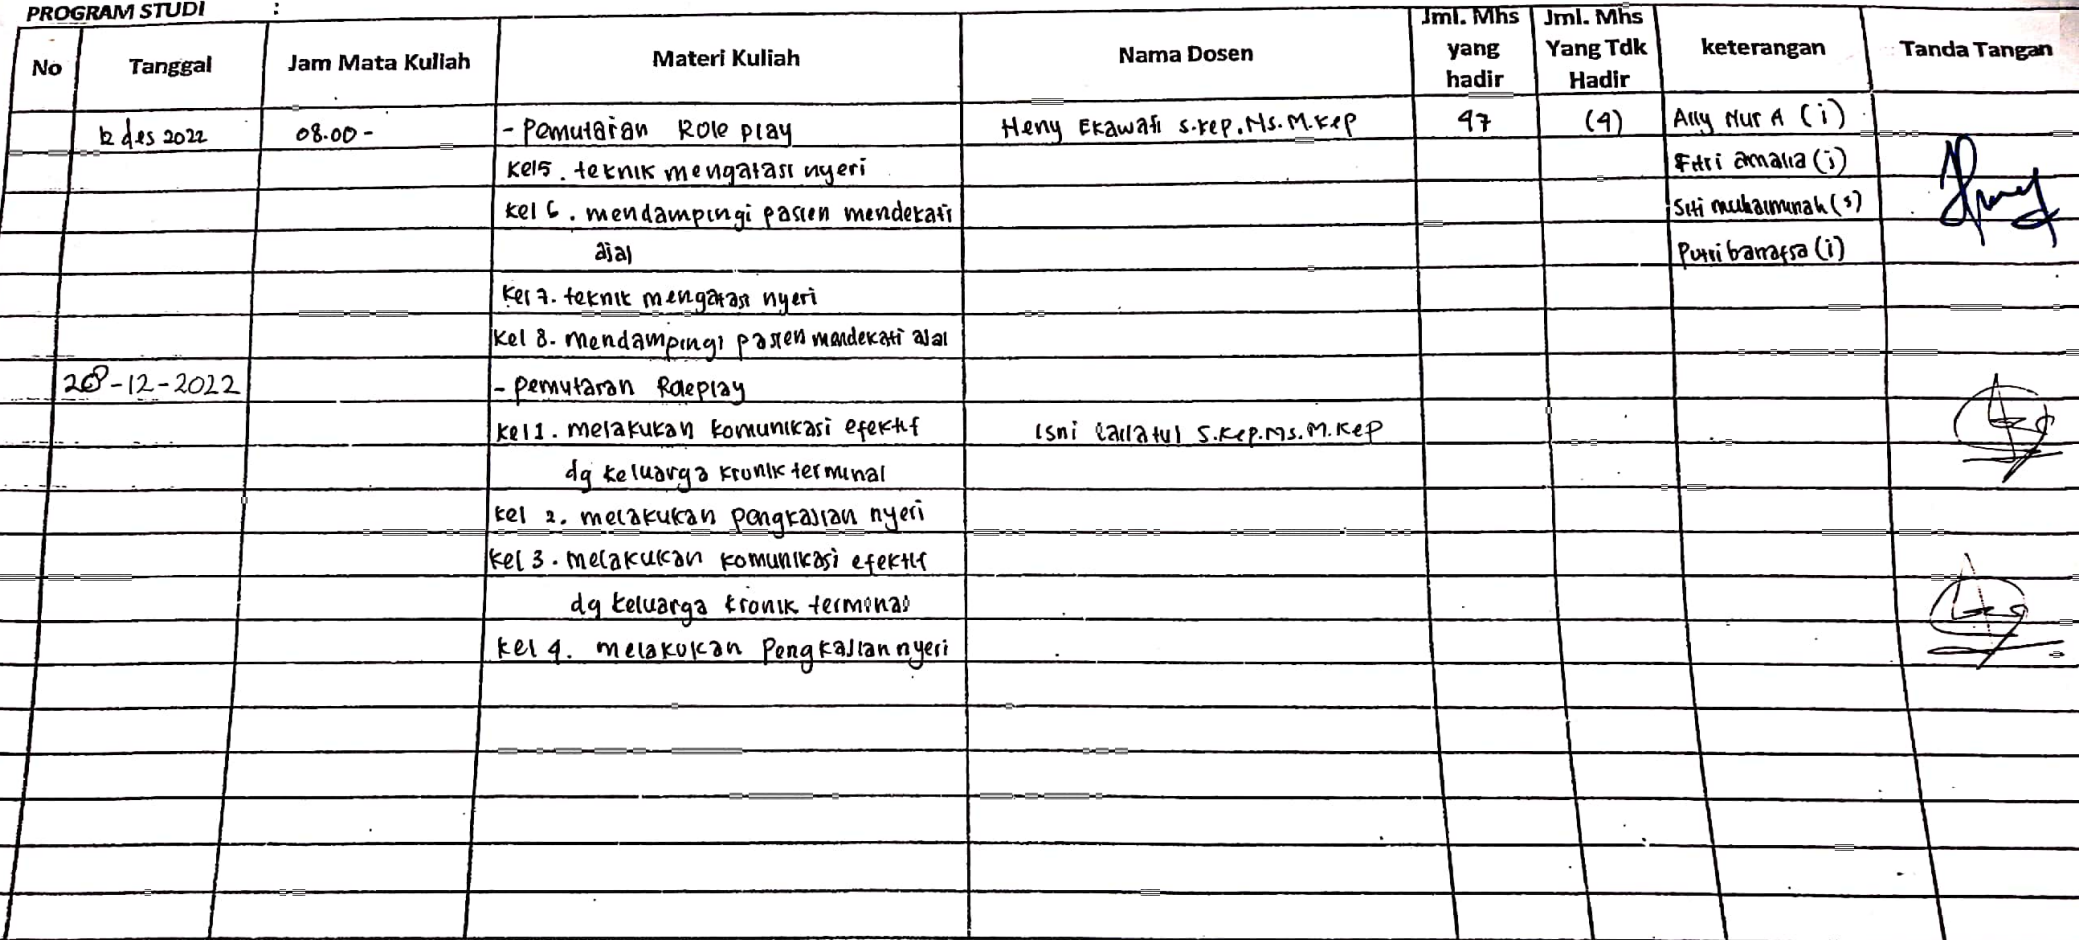 PROGRAM STUDI :
No Tanggal Jam Mata Kuliah Materi Kuliah Nama Dosen Jml. Mhs yang hadir Jml. Mhs Yang Tdk Hadir keterangan Tanda Tangan
12 des 2022 08.00 - - Pemutaran Role play Heny Ekawati S.Kep.Ns.M.Kep 47 (4) Ally Nur A (i)
Kel 5. teknik mengatasi nyeri Fitri amalia (i)
Kel 6. mendampingi pasien mendekati Siti muhaimunah (s)
ajal Putri (i)
Kel 7. teknik mengatasi nyeri
Kel 8. mendampingi pasien mendekati ajal
28-12-2022 - Pemutaran Roleplay
Kel 1. melakukan komunikasi efektif Isni Lailatul S.Kep.Ns.M.Kep
dg keluarga kronik terminal
Kel 2. melakukan pengkajian nyeri
Kel 3. melakukan komunikasi efektif
dg keluarga kronik terminal
Kel 4. melakukan Pengkajian nyeri